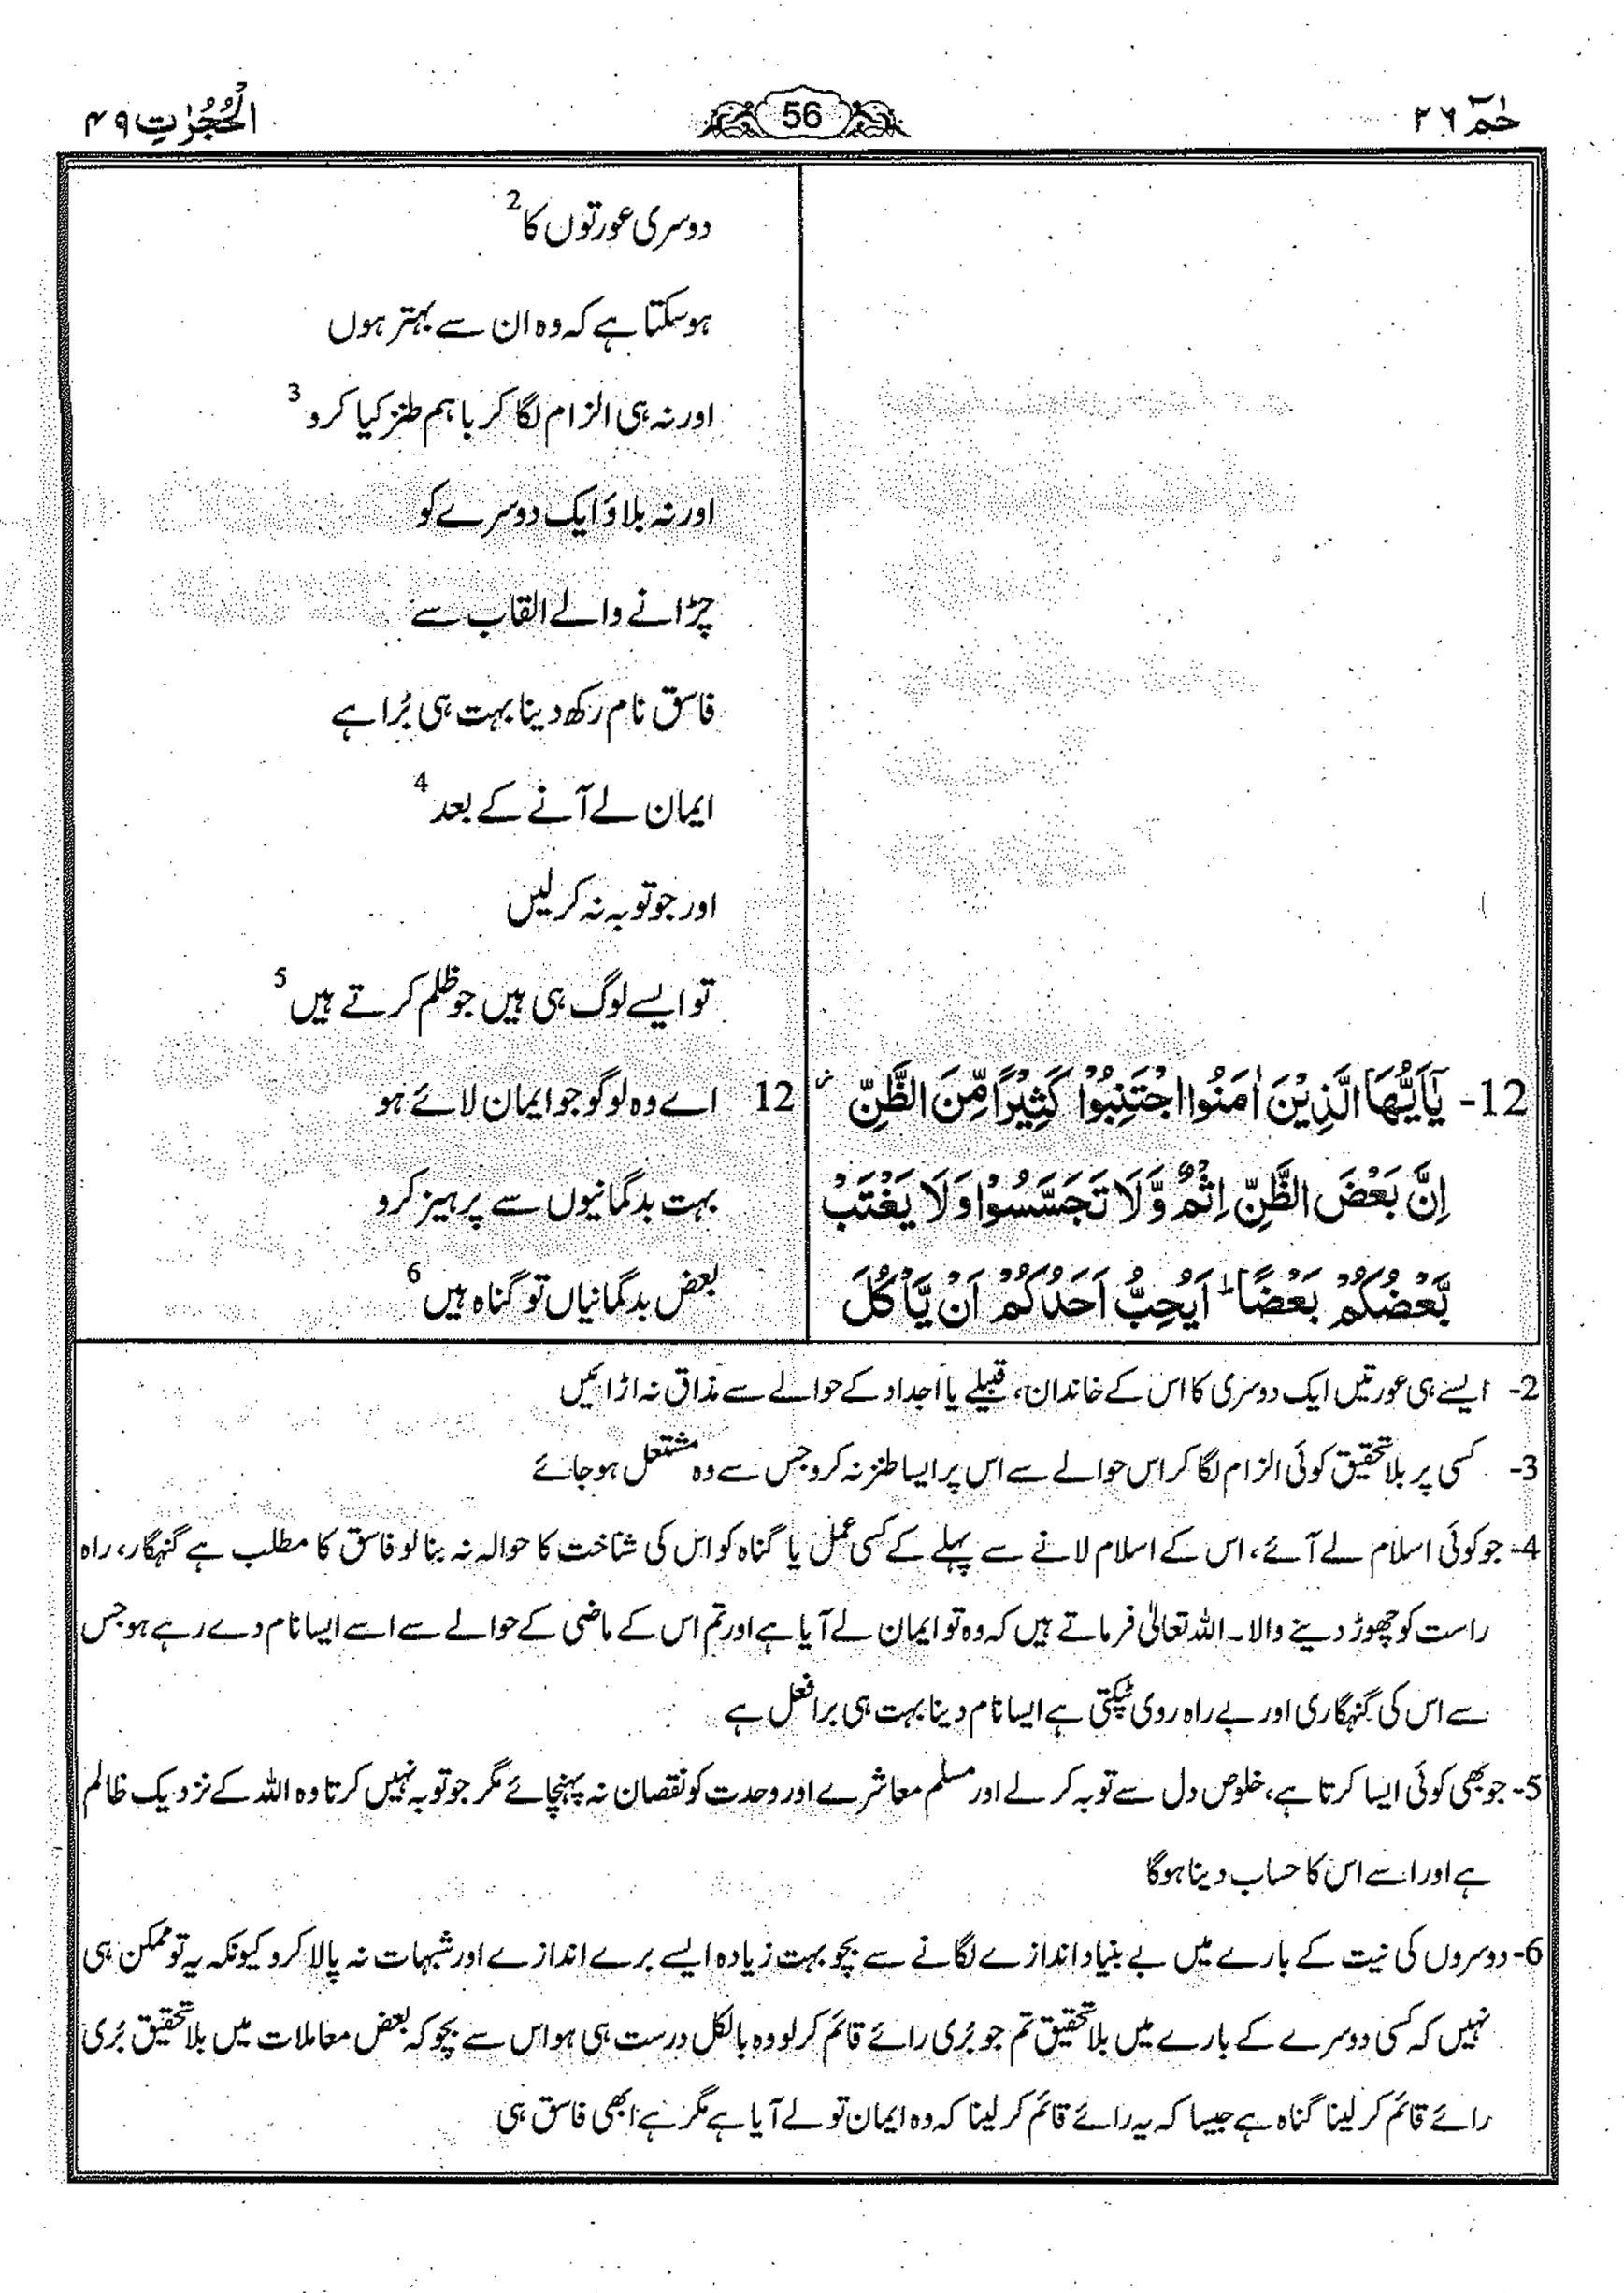 حٰمٓ ٢٦
56
الْحُجُرٰتِ ٤٩
دوسری عورتوں کا 2
ہوسکتا ہے کہ وہ ان سے بہتر ہوں
اور نہ ہی الزام لگا کر باہم طنز کیا کرو 3
اور نہ بلاؤ ایک دوسرے کو
چڑانے والے القاب سے
فاسق نام رکھ دینا بہت ہی بُرا ہے
ایمان لے آنے کے بعد 4
اور جو توبہ نہ کر لیں
تو ایسے لوگ ہی ہیں جو ظلم کرتے ہیں 5
12- يٰٓاَيُّهَا الَّذِيْنَ اٰمَنُوا اجْتَنِبُوْا كَثِيْرًا مِّنَ الظَّنِّ ۫
اِنَّ بَعْضَ الظَّنِّ اِثْمٌ وَّلَا تَجَسَّسُوْا وَلَا يَغْتَبْ
بَّعْضُكُمْ بَعْضًا ؕ اَيُحِبُّ اَحَدُكُمْ اَنْ يَّاْكُلَ
12 اے وہ لوگو جو ایمان لائے ہو
بہت بدگمانیوں سے پرہیز کرو
بعض بدگمانیاں تو گناہ ہیں 6
2- ایسے ہی عورتیں ایک دوسری کا اس کے خاندان، قبیلے یا اجداد کے حوالے سے مذاق نہ اڑائیں
3- کسی پر بلا تحقیق کوئی الزام لگا کر اس حوالے سے اس پر ایسا طنز نہ کرو جس سے وہ مشتعل ہو جائے
4- جو کوئی اسلام لے آئے، اس کے اسلام لانے سے پہلے کے کسی عمل یا گناہ کو اس کی شناخت کا حوالہ نہ بنا لو فاسق کا مطلب ہے گنہگار، راہ
راست کو چھوڑ دینے والا۔ اللہ تعالیٰ فرماتے ہیں کہ وہ تو ایمان لے آیا ہے اور تم اس کے ماضی کے حوالے سے اسے ایسا نام دے رہے ہو جس
سے اس کی گنہگاری اور بے راہ روی ٹپکتی ہے ایسا نام دینا بہت ہی برا فعل ہے
5- جو بھی کوئی ایسا کرتا ہے، خلوص دل سے توبہ کر لے اور مسلم معاشرے اور وحدت کو نقصان نہ پہنچائے مگر جو توبہ نہیں کرتا وہ اللہ کے نزدیک ظالم
ہے اور اسے اس کا حساب دینا ہوگا
6- دوسروں کی نیت کے بارے میں بے بنیاد اندازے لگانے سے بچو بہت زیادہ ایسے برے اندازے اور شبہات نہ پالا کرو کیونکہ یہ تو ممکن ہی
نہیں کہ کسی دوسرے کے بارے میں بلا تحقیق تم جو بُری رائے قائم کر لو وہ بالکل درست ہی ہو اس سے بچو کہ بعض معاملات میں بلا تحقیق بُری
رائے قائم کر لینا گناہ ہے جیسا کہ یہ رائے قائم کر لینا کہ وہ ایمان تو لے آیا ہے مگر ہے ابھی فاسق ہی